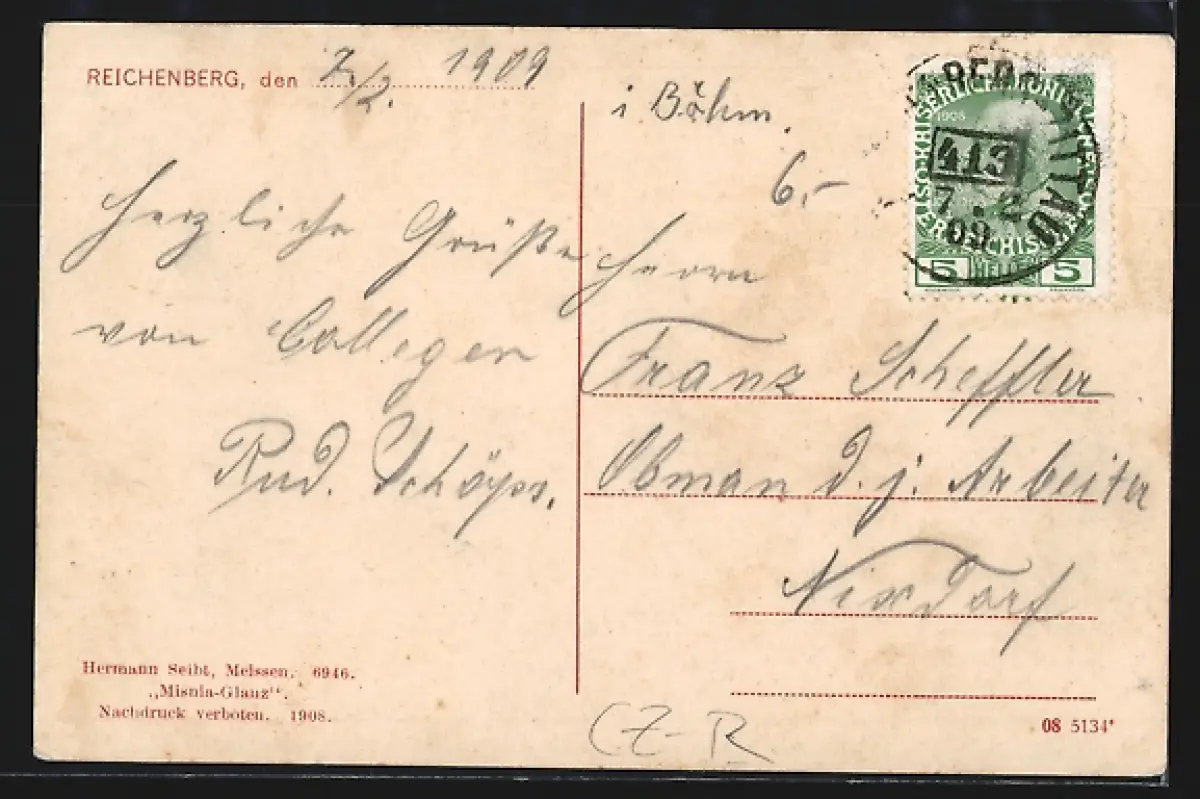 REICHENBERG, den 7/2. 1909
Herzliche Grüße
von Collegen
Rud. Schöps.
Hermann Seibt, Meissen. 6946.
„Misnia-Glanz“.
Nachdruck verboten. 1908.
i Böhm.
6.-
413
7. 2
09
1908
5 HELLER 5
Herrn
Franz Scheffler
Obman d. j. Arbeiter
Nixdorf
CZ-R
08 5134*